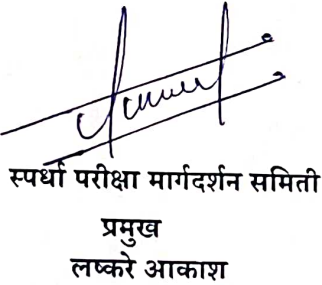 स्पर्धा परीक्षा मार्गदर्शन समिती
प्रमुख
लष्करे आकाश